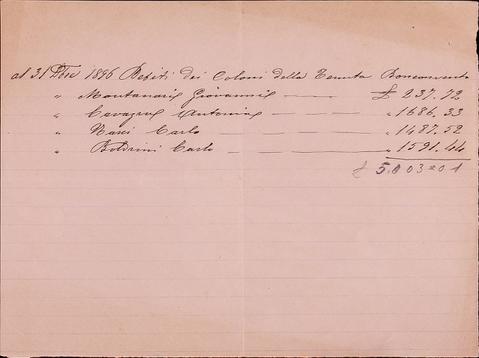 al 31 Dbre 1896 Debiti dei Coloni della Tenuta Bonconvento
" Montanari Giovanni — £ 237.72
" Cavazza Antonio — " 1686.33
" Nasci Carlo — " 1487.52
" Boldrini Carlo — " 1591.44
£ 5003=01